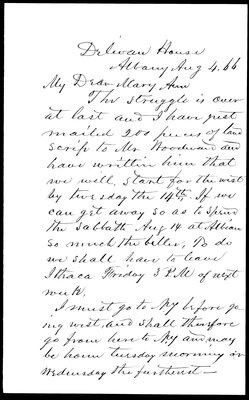 Delevan House
Albany Aug 4. 66
My Dear Mary Ann
The struggle is over
at last and I have just
mailed 200 pieces of land
Scrip to Mr Woodward and
have written him that
we will start for the west
by tuesday the 14th. If we
can get away so as to spend
the Sabbath Aug 14 at Albion
so much the better, To do
we shall have to leave
Ithaca Friday 3 P.M. of next
week,
I must go to NY before go
ing west, and shall therefore
go from here to NY and may
be home tuesday morning or
Wednesday the furtherest —